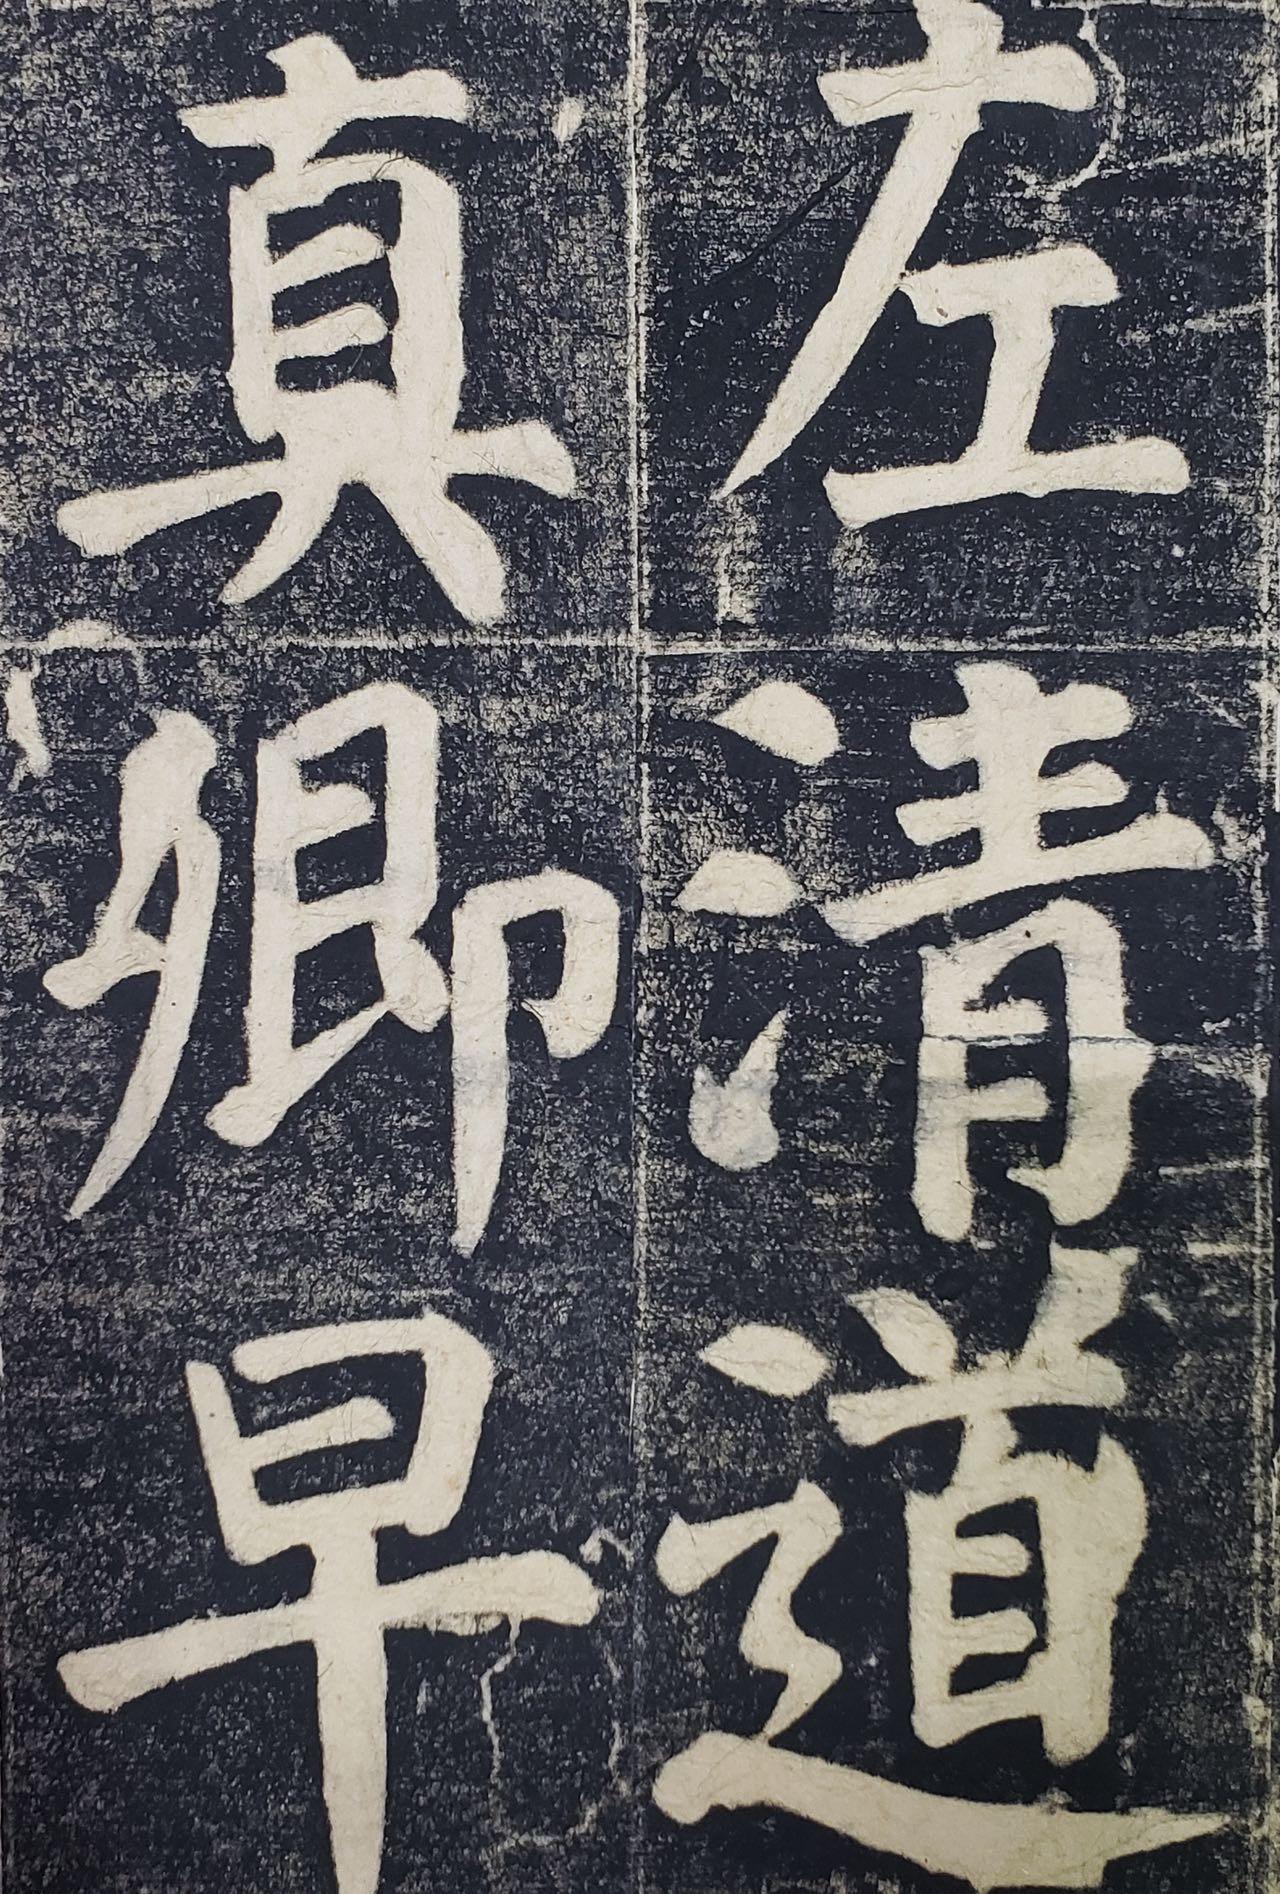 左清道
真卿早